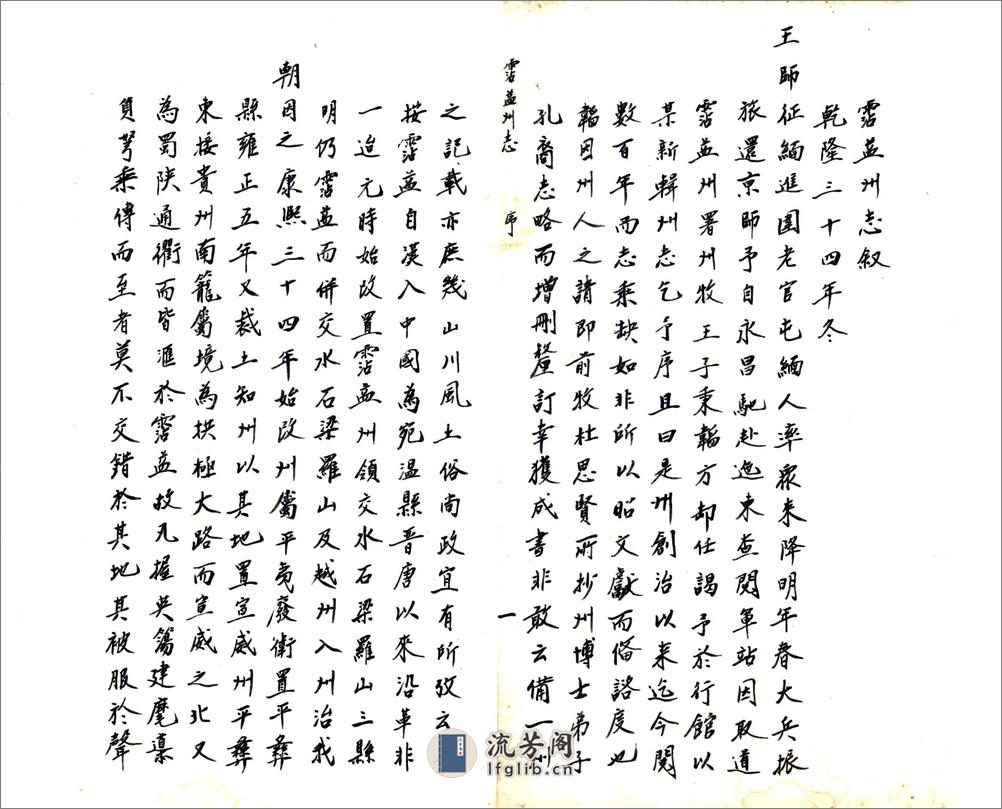 霑益州志叙
乾隆三十四年冬
王師征緬進圍老官屯緬人率眾来降明年春大兵振
旅還京師予自永昌馳赴迤東查閱軍站因取道
霑益州署州牧王子秉韜方却任謁予於行館以
某新輯州志乞予序且曰是州創治以来迄今閱
數百年而志乘缺如非所以昭文獻而俻諮度也
韜因州人之請即前牧杜思賢所抄州博士弟子
孔裔志略而增刪釐訂幸獲成書非敢云備一州
霑益州志 序 一
之記載亦庶幾山川風土俗尚政宜有所攷云
按霑益自漢入中國為宛溫縣晋唐以來沿革非
一迨元時始改置霑益州領交水石梁羅山三縣
明仍霑益而併交水石梁羅山及越州入州治我
朝因之康熙三十四年始改州屬平夷廢衛置平彝
縣雍正五年又裁土知州以其地置宣威州平彝
東接貴州南籠屬境為拱極大路而宣威之北又
為蜀陕通衢而皆滙於霑益故凡握英簜建麾纛
負弩乘傳而至者莫不交錯於其地其被服於聲
流芳阁
lfglib.cn